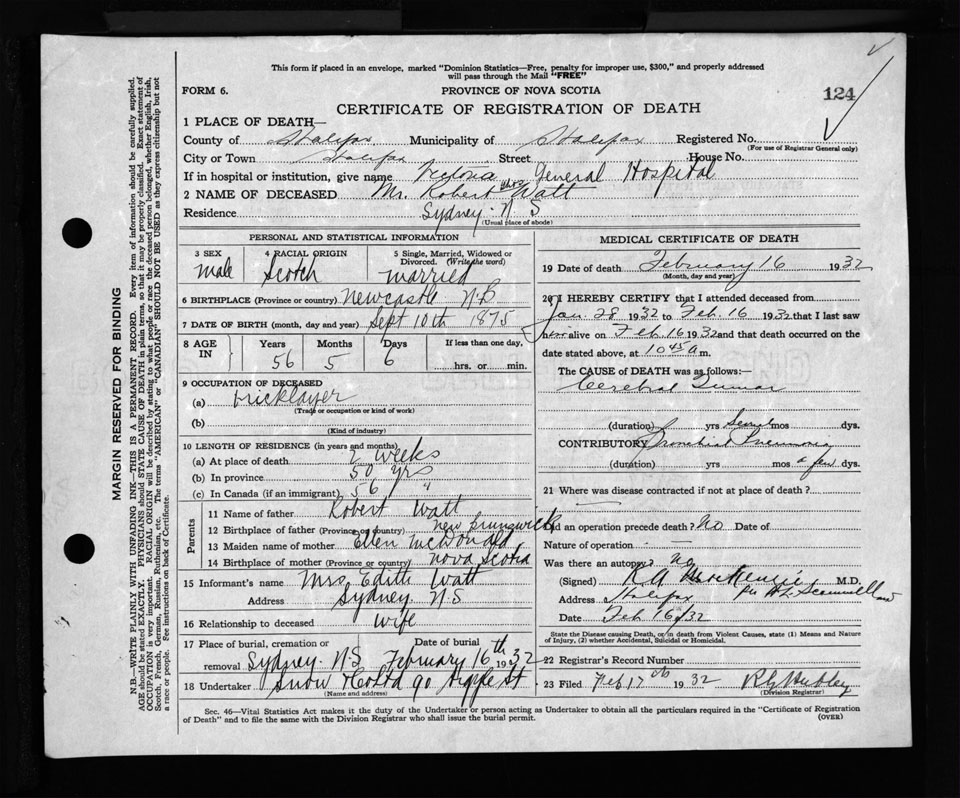 This form if placed in an envelope, marked "Dominion Statistics—Free, penalty for improper use, $300," and properly addressed
will pass through the Mail "FREE"
FORM 6. PROVINCE OF NOVA SCOTIA 124
CERTIFICATE OF REGISTRATION OF DEATH
1 PLACE OF DEATH—
County of Halifax Municipality of Halifax Registered No.
(For use of Registrar General only)
City or Town Halifax Street House No.
If in hospital or institution, give name Victoria General Hospital
2 NAME OF DECEASED Mr. Robert Chas Watt
Residence Sydney N S
(Usual place of abode)
PERSONAL AND STATISTICAL INFORMATION
3 SEX 4 RACIAL ORIGIN 5 Single, Married, Widowed or
Divorced. (Write the word)
male Scotch married
6 BIRTHPLACE (Province or country) Newcastle N.B
7 DATE OF BIRTH (month, day and year) Sept 10th 1875
8 AGE IN Years Months Days If less than one day,
56 5 6 hrs. or min.
9 OCCUPATION OF DECEASED
(a) bricklayer
(Trade or occupation or kind of work)
(b)
(Kind of industry)
10 LENGTH OF RESIDENCE (in years and months)
(a) At place of death 2 weeks
(b) In province 50 yrs
(c) In Canada (if an immigrant) 56 "
Parents
11 Name of father Robert Watt
12 Birthplace of father (Province or country) New Brunswick
13 Maiden name of mother Ellen McDonald
14 Birthplace of mother (Province or country) Nova Scotia
15 Informant's name Mrs. Edith Watt
Address Sydney N.S
16 Relationship to deceased wife
17 Place of burial, cremation or Date of burial
removal Sydney N S February 16th 1932
18 Undertaker Snow & Co Ltd 90 Argyle St
(Name and address)
MEDICAL CERTIFICATE OF DEATH
19 Date of death February 16 1932
(Month, day and year)
20 I HEREBY CERTIFY that I attended deceased from
Jan. 28 1932 to Feb. 16 1932 that I last saw
him alive on Feb 16 1932 and that death occurred on the
date stated above, at 10 45 a m.
The CAUSE of DEATH was as follows:—
Cerebral Tumor
(duration) yrs mos dys.
CONTRIBUTORY Bronchial Pneumonia
(duration) yrs mos a few dys.
21 Where was disease contracted if not at place of death?
Did an operation precede death? No Date of
Nature of operation
Was there an autopsy? No
(Signed) K A MacKenzie M.D.
Address Halifax
Date Feb 16/32
State the Disease causing Death, or, in death from Violent Causes, state (1) Means and Nature
of Injury, (2) whether Accidental, Suicidal or Homicidal.
22 Registrar's Record Number
23 Filed Feb 17th 1932
(Division Registrar)
Sec. 46—Vital Statistics Act makes it the duty of the Undertaker or person acting as Undertaker to obtain all the particulars required in the "Certificate of Registration
of Death" and to file the same with the Division Registrar who shall issue the burial permit. (OVER)
MARGIN RESERVED FOR BINDING
N.B.—WRITE PLAINLY WITH UNFADING INK—THIS IS A PERMANENT RECORD. Every item of information should be carefully supplied.
AGE should be stated EXACTLY. PHYSICIANS should STATE CAUSE OF DEATH in plain terms, so that it may be properly classified. Exact statement of
OCCUPATION is very important. RACIAL ORIGIN will be described by stating to what people or race the deceased person belonged, whether English, Irish,
Scotch, French, German, Russian, Ruthenian, etc. The terms "AMERICAN" or "CANADIAN" SHOULD NOT BE USED as they express citizenship but not
a race or people. See instructions on back of Certificate.